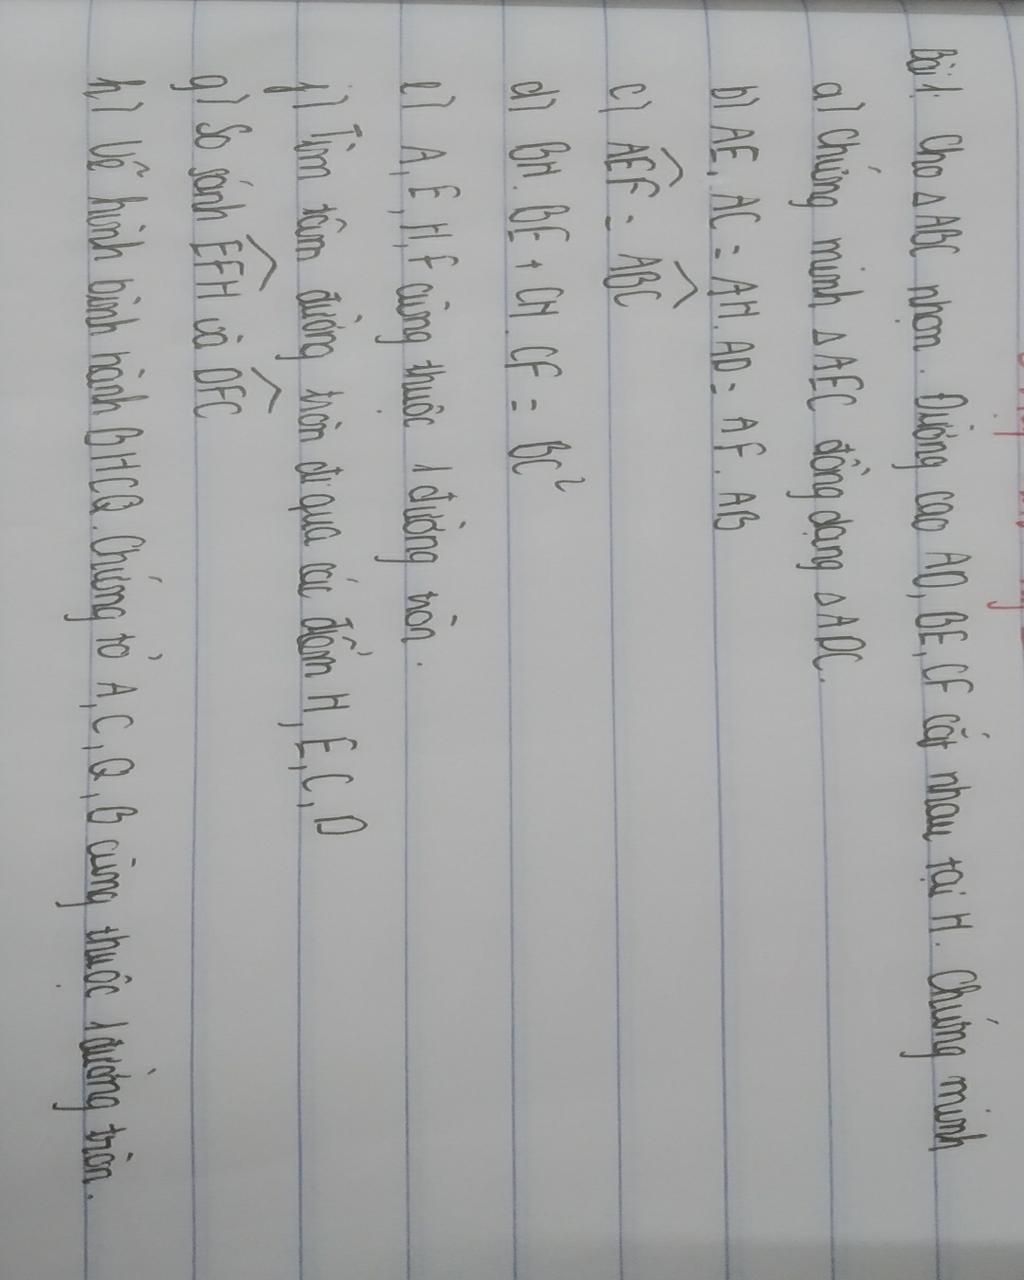 Bài 1: Cho △ABC nhọn. Đường cao AD, BE, CF cắt nhau tại H. Chứng minh
a) Chứng minh △AEC đồng dạng △ADC.
b) AE. AC = AH. AD = AF. AB
c) \widehat{AEF} = \widehat{ABC}
d) BH. BE + CH. CF = BC²
e) A, E, H, F cùng thuộc 1 đường tròn.
f) Tìm tâm đường tròn đi qua các điểm H, E, C, D
g) So sánh \widehat{EFH} và \widehat{DFC}
h) Vẽ hình bình hành BHCQ. Chứng tỏ A, C, Q, B cùng thuộc 1 đường tròn.